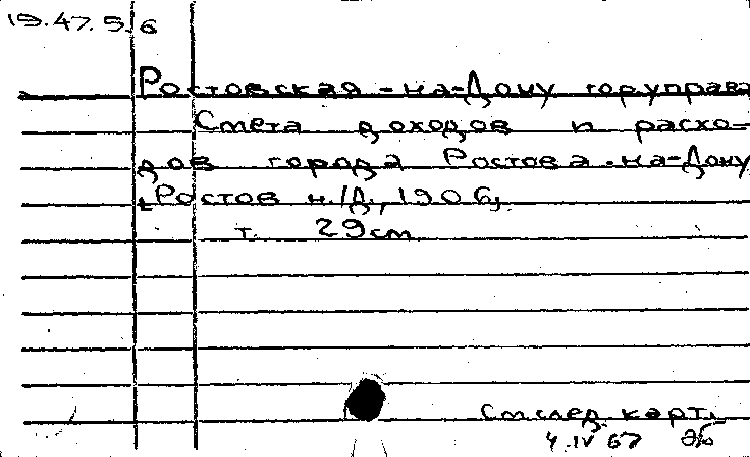 19.47.5.6
Ростовская-на-Дону горуправа
Смета доходов и расхо-
дов города Ростова-на-Дону
Ростов н./Д., 1906,
т. 29 см
См след. карт.
4.IV 67